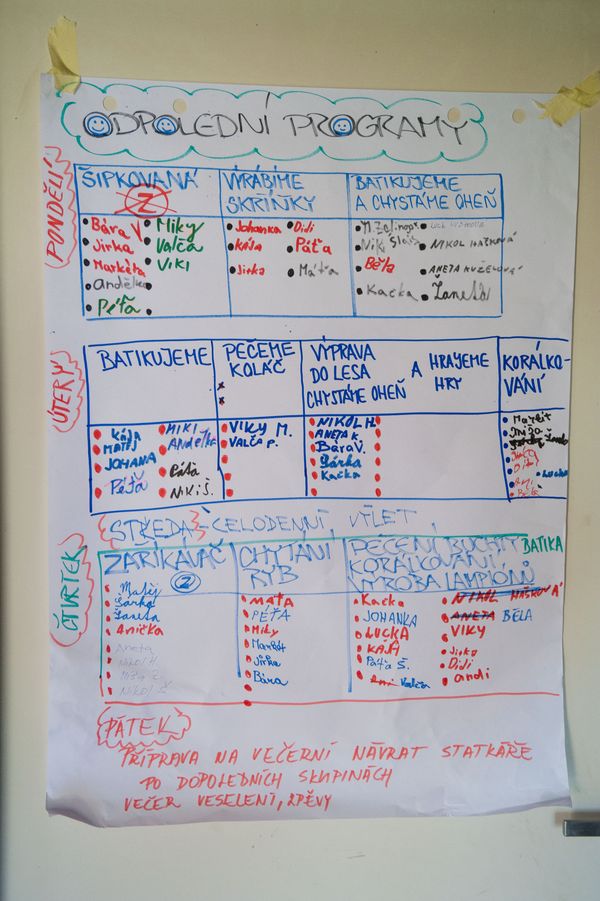 ODPOLEDNÍ PROGRAMY
PONDĚLÍ
ŠIPKOVANÁ
Z
Bára V
Jirka
Markéta
Andělka
Péťa
Miky
Valča
Viki
VYRÁBÍME
SKŘÍŇKY
Johanka
Kája
Jirka
Didi
Páťa
Máťa
BATIKUJEME
A CHYSTÁME OHEŇ
Běla
Kačka
NIKOL HAŠKOVÁ
ANETA KUŽELOVÁ
Žaneta
ÚTERÝ
BATIKUJEME
KÁJA
MATĚJ
JOHANA
Péťa
MIKI
Andělka
Páťa
NIKI Š.
PEČEME
KOLÁČ
VIKY M.
VALČA P.
VÝPRAVA
DO LESA
CHYSTÁME OHEŇ
A HRAJEME
HRY
NIKOL H.
ANETA K.
Bára V.
Šárka
Kačka
KORÁLKO-
VÁNÍ
Markét
Běla
Lucka
STŘEDA - CELODENNÍ VÝLET
ČTVRTEK
ZAŘÍKÁVAČ
Z
Matěj
Šárka
Žaneta
Anička
Aneta
Nikol H.
Nikol Š
CHYTÁNÍ
RYB
MÁŤA
PÉŤA
Miky
Markét
Jirka
Bára
PEČENÍ BUCHTY BATIKA
KORÁLKOVÁNÍ
VÝROBA LAMPIONŮ
Kačka
JOHANKA
LUCKA
KÁJA
Páťa Š.
Valča
NIKOL HAŠKOVÁ
ANETA BĚLA
VIKY
Jirka
Didi
andi
PÁTEK
PŘÍPRAVA NA VEČERNÍ NÁVRAT STATKÁŘE
PO DOPOLEDNÍCH SKUPINÁCH
VEČER VESELENÍ, ZPĚVY